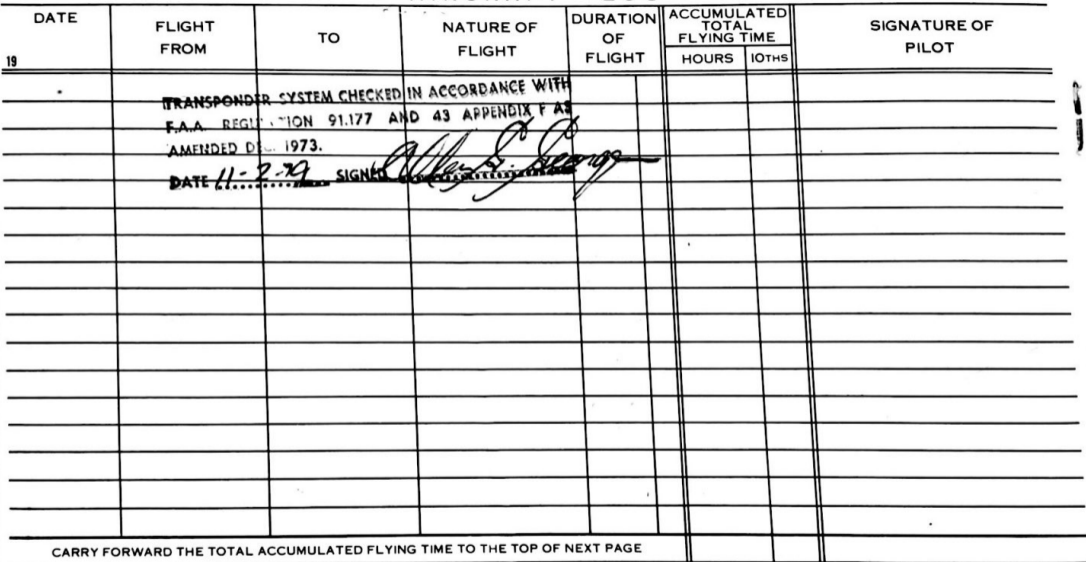 DATE
FLIGHT FROM
TO
NATURE OF FLIGHT
DURATION OF FLIGHT
ACCUMULATED TOTAL FLYING TIME
HOURS
10THS
SIGNATURE OF PILOT
19
TRANSPONDER SYSTEM CHECKED IN ACCORDANCE WITH
F.A.A. 91.177 AND 43 APPENDIX F AS
AMENDED DEC. 1973.
DATE 11-2-79 SIGNED
CARRY FORWARD THE TOTAL ACCUMULATED FLYING TIME TO THE TOP OF NEXT PAGE